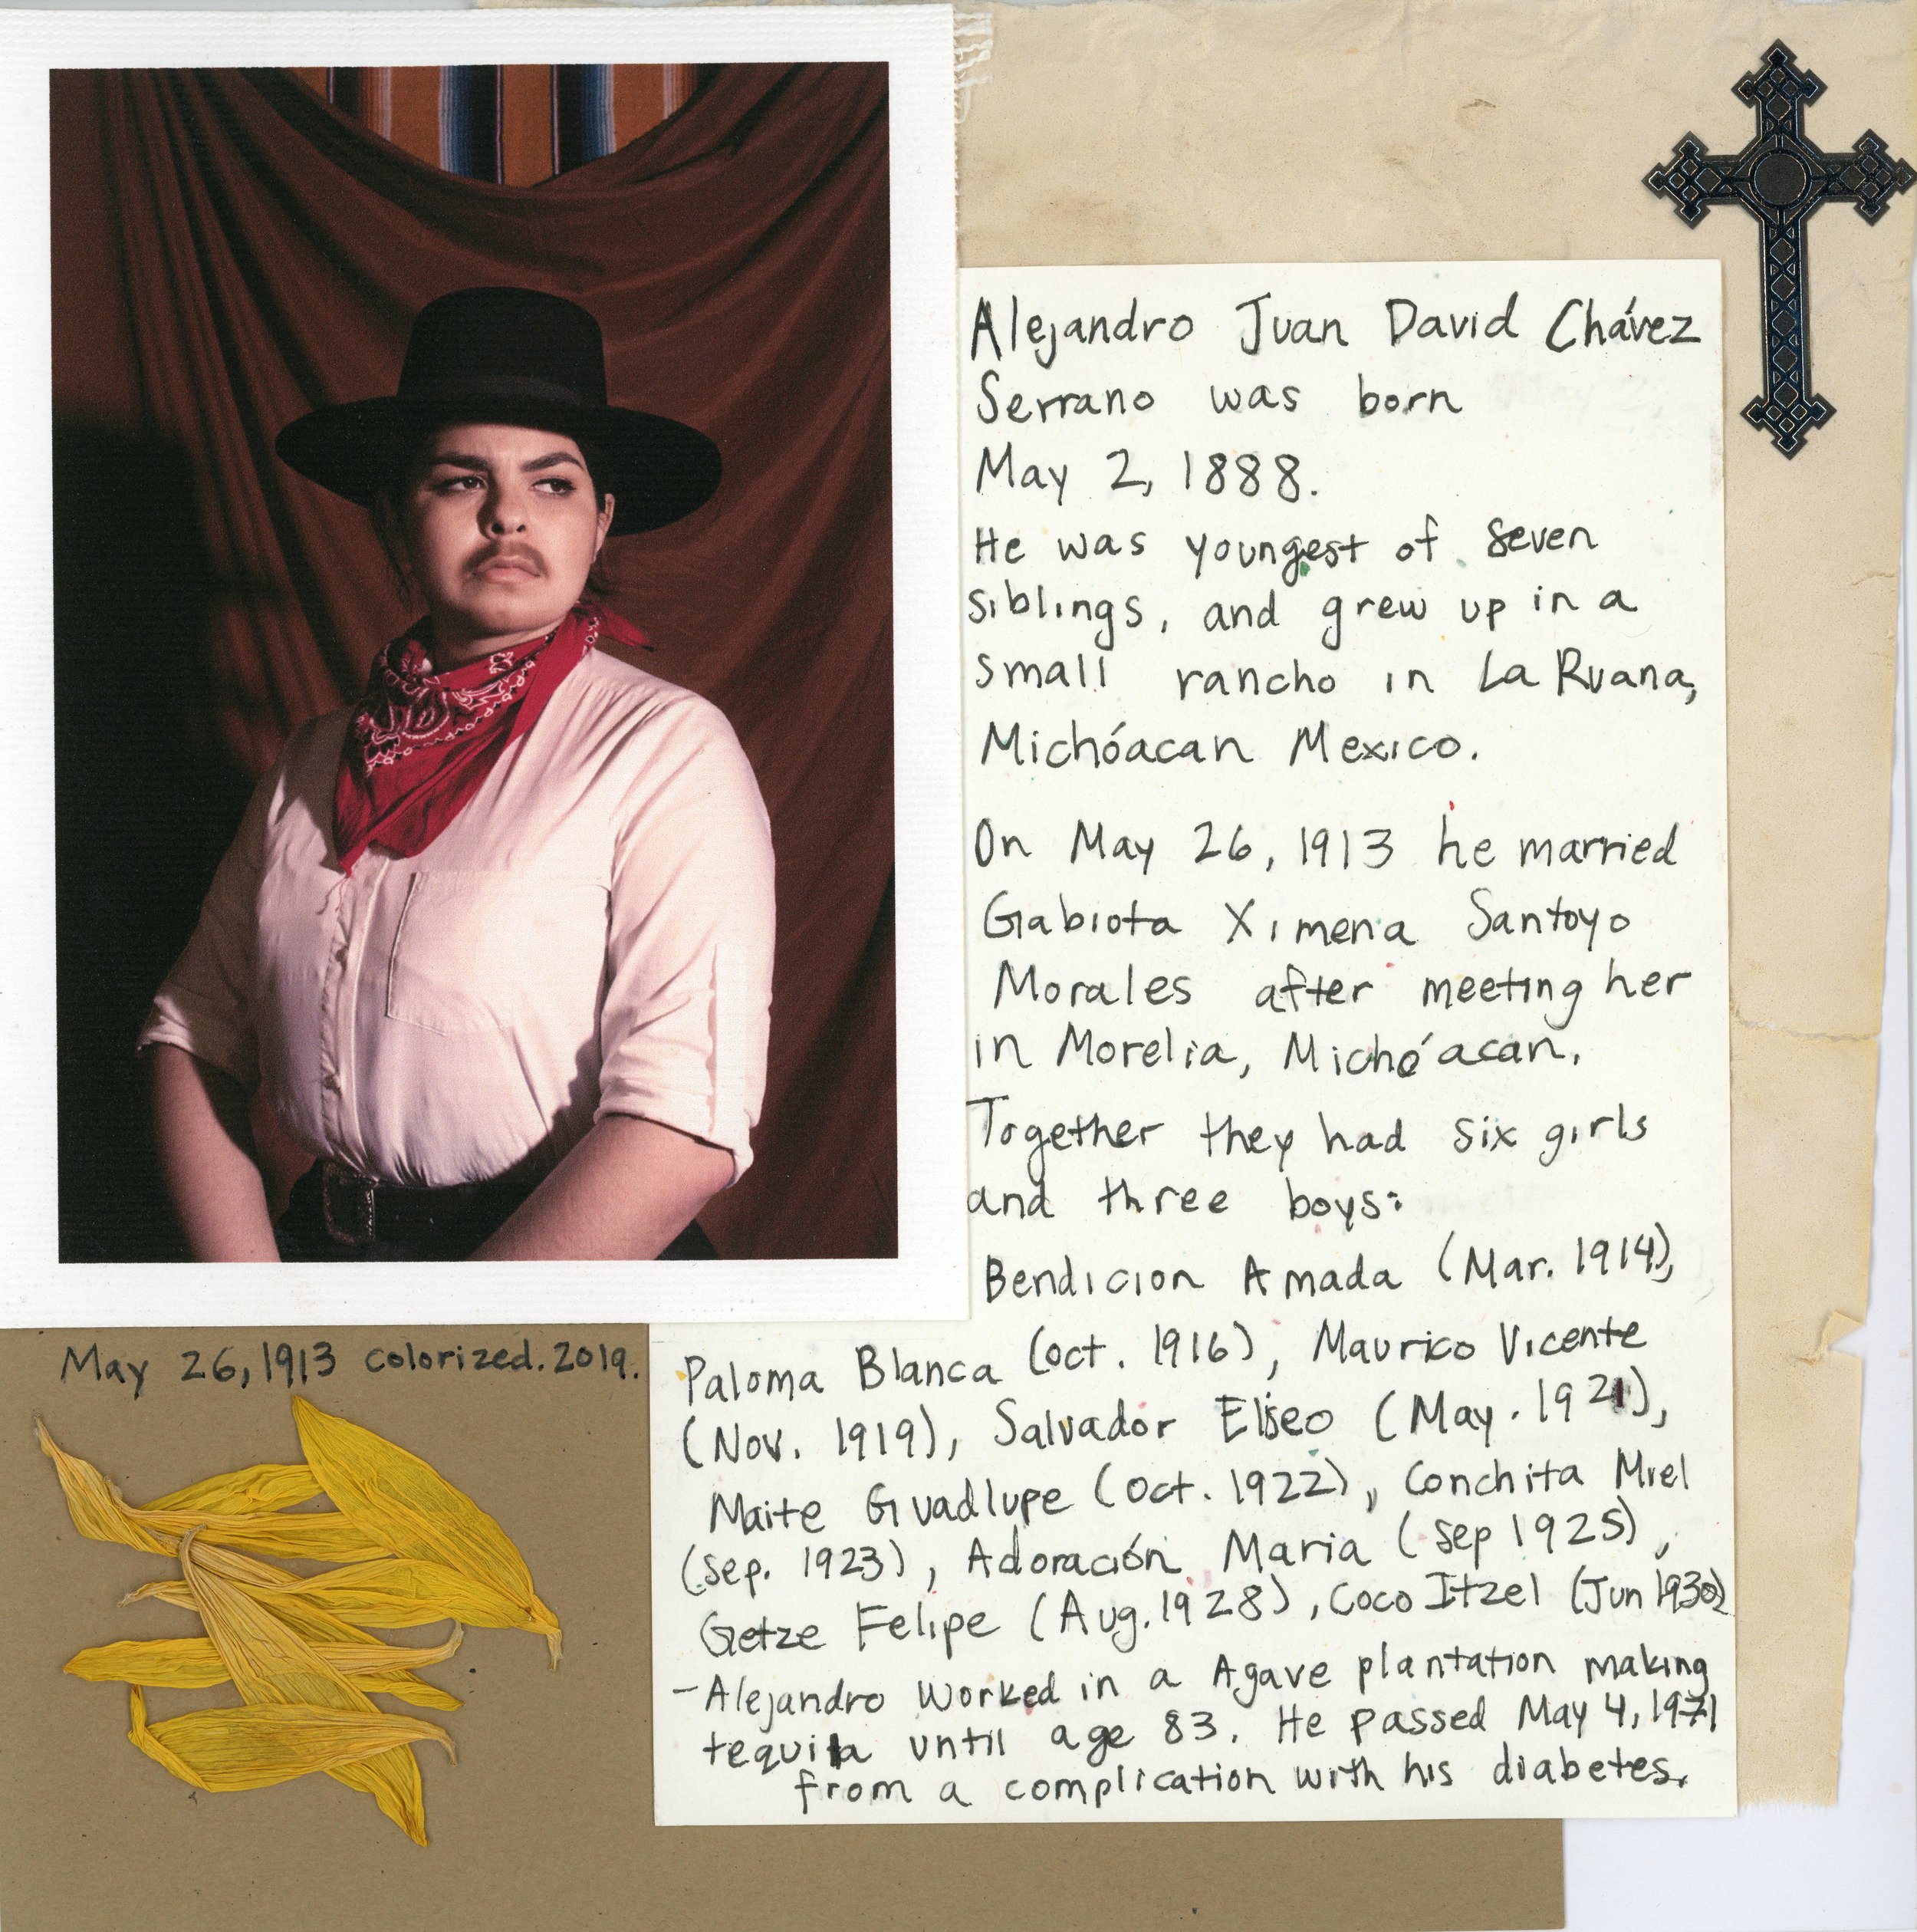 Alejandro Juan David Chávez
Serrano was born
May 2, 1888.
He was youngest of seven
siblings, and grew up in a
small rancho in La Ruana,
Michóacan Mexico.
On May 26, 1913 he married
Gabiota Ximena Santoyo
Morales after meeting her
in Morelia, Michóacan.
Together they had six girls
and three boys:
Bendicion Amada (Mar. 1914),
Paloma Blanca (oct. 1916), Maurico Vicente
(Nov. 1919), Salvador Eliseo (May. 1921),
Maite Guadlupe (oct. 1922), Conchita Miel
(sep. 1923), Adoración Maria (sep 1925),
Getze Felipe (Aug. 1928), Coco Itzel (Jun 1930)
-Alejandro worked in a Agave plantation making
tequila until age 83. He passed May 4, 1971
from a complication with his diabetes.
May 26, 1913 colorized. 2019.